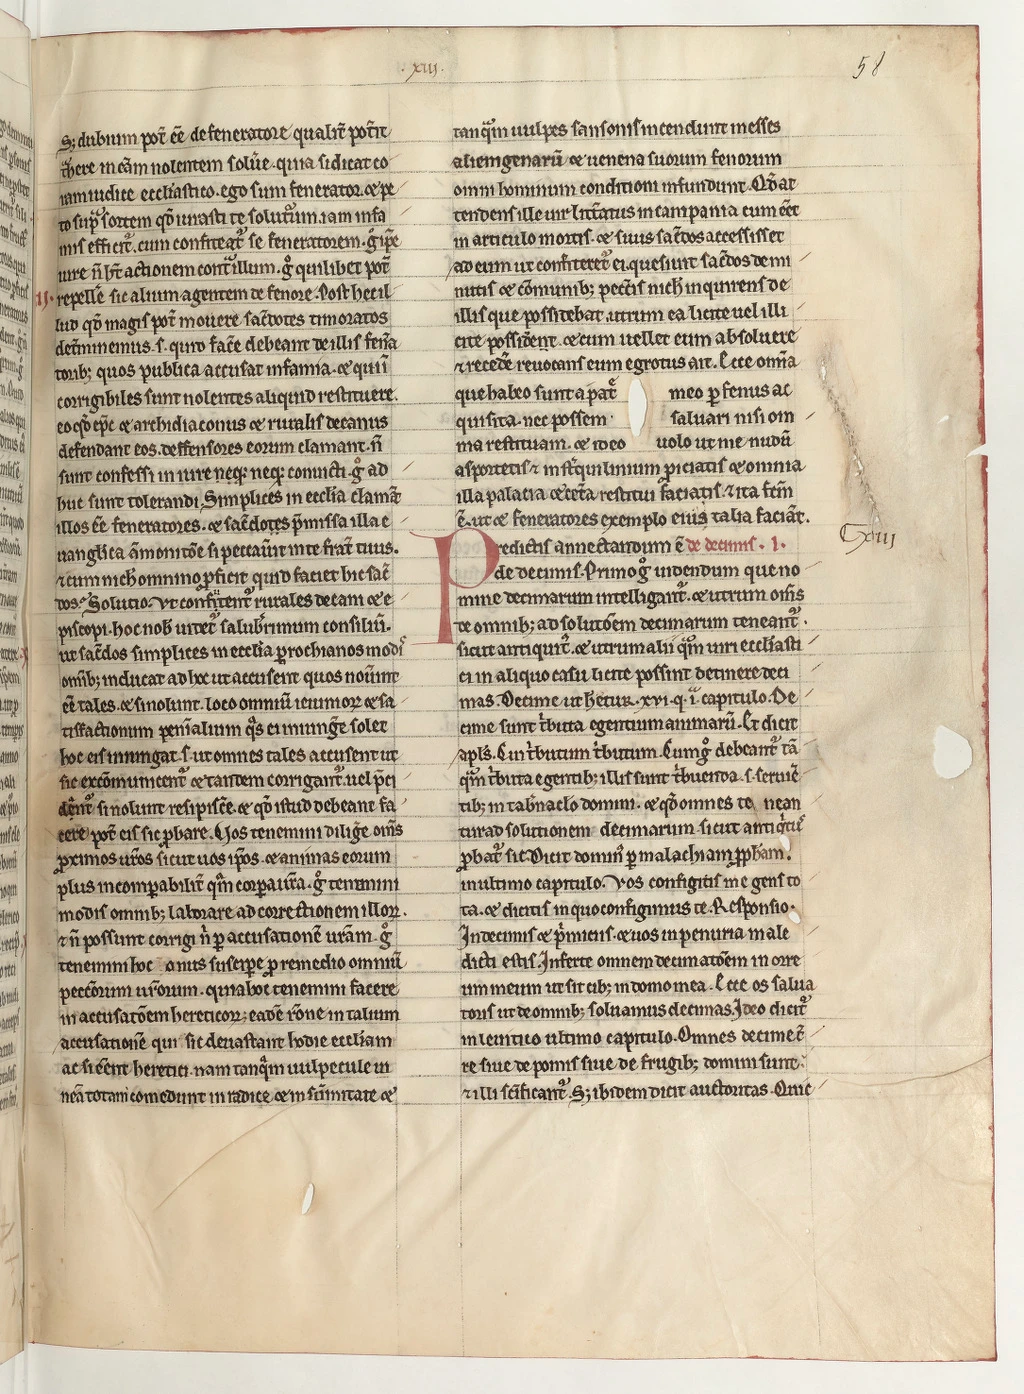 .xiii.
58
S; dubium pot̄ eē de feneratore qualit̄ pot̄it
in cām nolentem solūe. quia si dicat co
ram iudice eccłiastico. ego sum fenerator. ⁊ pe
to sup̄ sortem qd̄ iurasti te soluturum. iam infa
mis efficit᷑. cum confiteat᷑ se feneratorem. ḡ ip̄e
iure n̄ hēt actionem cont᷑ illum. ḡ quilibet pot̄
ij.
repelle᷑ sic alium agentem de fenore. Post hec il
lud qd̄ magis pot̄ mouere sac̄dotes timoratos
det̄minemus. s. quid fac̄e debeant de illis fen̄a
torib; quos publica accusat infamia. ⁊ qui īn
corrigibiles sunt nolentes aliquid restituere.
eo qd̄ ep̄c ⁊ archidiaconus ⁊ ruralis decanus
defendant eos. defensores eorum clamant. n̄
sunt confessi in iure neq; neq; conuicti. ḡ ad
huc sunt tolerandi. Simplices in eccłia clamāt
illos eē feneratores. ⁊ sac̄dotes p̄missa illa e
uanglica āmonitōe si peccau̇it in te frat̄ tuus.
⁊ cum nich̄ omnino ꝓficit quid faciet hic sac̄
dos. Solutio. Vt confitent᷑ rurales decani ⁊ e
piscopi. hoc nob̄ uidet᷑ saluberrimum consiliū.
ut sac̄dos simplices in eccłia ꝑrochianos modis
omīb; inducat ad hoc ut accusent quos nou̇int
eē tales. ⁊ si nolunt. loco omniū ieiunioꝝ ⁊ sa
tisfactionum penītalium q̄s ei iniungē solet
hoc eis iniungat. s. ut omnes tales accusent ut
sic excōmunicent᷑ ⁊ tandem corrigant᷑. uel p̄ci
dant᷑ si nolunt resipisc̄e. ⁊ qd̄ istud debeant fa
cere pot̄ eis sic ꝓbare. Uos tenemini diliḡe om̄s
ꝓximos ur̄os sicut uos ip̄os. ⁊ animas eorum
plus incomꝑabilit̄ q̄m corꝑa ur̄a. ḡ tenemini
modis omnib; laborare ad correctionem illoꝝ.
⁊ n̄ possunt corrigi n̄ ꝑ accusationē uram. ḡ
tenemini hoc onus suscipe ꝓ remedio omniū
peccōrum ur̄orum. quia hoc tenemini facere
in accusatōem hereticoꝝ; eadē rōne in talium
accusationē qui sic deuastant hodie eccłiam
ac si eēnt heretici. nam tanq̄m uulpecule ui
neā totam comedunt in radice ⁊ in sūmitate ⁊
tanq̄m uulpes sansonis incendunt messes
alienigenarū ⁊ uenena suorum fenorum
omni hominum conditioni infundunt. Qd̄ at
tendens ille uir litt̄atus in campania cum eēt
in articulo mortis. ⁊ suus sac̄dos accessisset
ad eum ut confiteret᷑ ei. quesiuit sac̄dos de mi
nutis ⁊ cōmunib; pecc̄is nich̄ inquirens de
illis que possidebat. utrum ea licite uel illi
cite possident. ⁊ cum uellet eum absoluere
⁊ recede᷑ reuocans eum egrotus ait. Ecce omīa
que habeo sunt a pat̄ meo ꝑ fenus ac
quisita. nec possem saluari nisi om
nia restituam. ⁊ ideo uolo ut me nudū
asportetis ⁊ in st̄quilinium ꝓiciatis ⁊ omnia
illa palacia ⁊ cet̄a restitui faciatis. ⁊ ita fc̄m
ē. ut ⁊ feneratores exemplo eius talia faciāt.
Predictis annectandum ē de decimis. 1.
Cxiii
de decimis. Primo ḡ uidendum quo no
mine decimarum intelligant᷑. ⁊ utrum om̄s
de omnib; ad solutōem decimarum teneant᷑.
sicut antiquit᷑. ⁊ utrum alii q̄m uiri eccłiasti
ci in aliquo casu licite possint detinere deci
mas. Decime ut hetur. xvi. q. i. capitulo. De
cime sunt t̄buta egentium animarū. Et dicit
apls̄. Cui t̄butum t̄butum. Cum ḡ debeant᷑ tā
q̄m t̄buta egentib; illis sunt t̄buenda. s. seruiē
tib; in tab̄naclo domini. ⁊ qd̄ omnes te nean
tur ad solutionem decimarum sicut antiq̄tus
ꝓbat᷑ sic. Dicit domin᷑ ꝑ malachiam ꝓpham.
in ultimo capitulo. Vos configitis me gens to
ta. ⁊ dicitis in quo configimus te. Responsio.
In decimis ⁊ p̄miciis. ⁊ uos in penuria male
dicti estis. Inferte omnem decimatōem in orre
um meum ut sit cib; in domo mea. Ecce os salua
toris ut de omnib; soluamus decimas. Ideo dicit᷑
in leuitico ultimo capitulo. Omnes decime t̄
re siue de pomis siue de frugib; domini sunt.
⁊ illi sc̄ificant᷑. S; ibidem dicit auctoritas. Omē